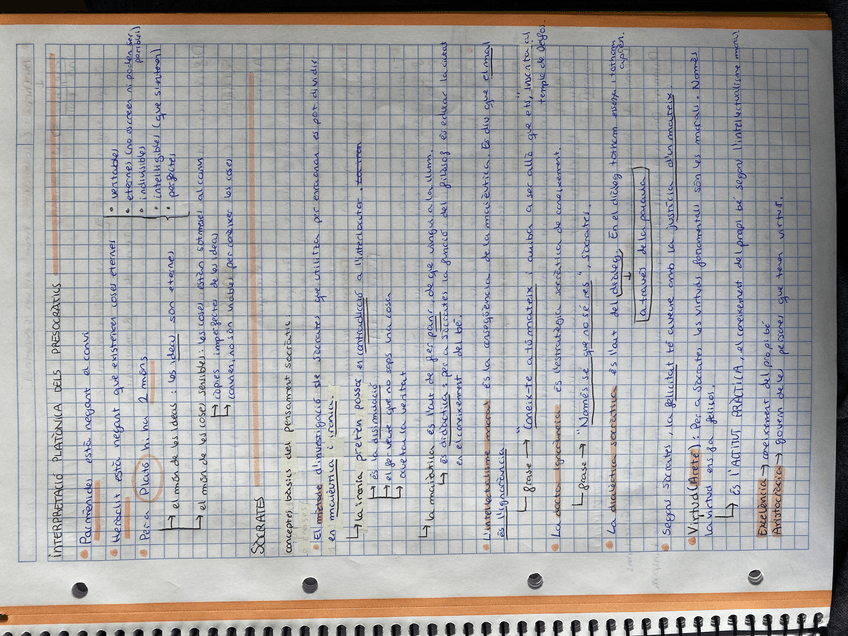 INTERPRETACIÓ PLATÒNICA DELS PRESOCRÀTICS
• Parmènides està negant el canvi
• Heràclit està negant que existeixen coses eternes
• Per a Plató hi ha 2 móns
↳ el món de les idees : les idees són eternes
• veritables
• eternes (no es creen ni poden ser
• indivisibles
• intel·ligibles (que s'entenen)
• perfectes
↳ el món de les coses sensibles: les coses estàn sotmeses al canvi
↳ còpies imperfectes de les idees
↳ canvien, no són viables per conèixer les coses
SÒCRATES
conceptes bàsics del pensament socràtic.
• El mètode d'investigació de Sòcrates que utilitza per enraonar es pot dividir
en maièutica i ironia.
↳ La ironia pretén posar en contradicció a l'interlocutor.
↳ és la dissimulació
↳ el fer veure que no saps una cosa
↳ ocultar la veritat
↳ la maièutica és l'art de fer parir, de que vingui a la llum.
↳ és didàctica i per a Sòcrates la funció del filòsof és educar la ciutat
en el coneixement del bé.
• L'intel·lectualisme moral és la conseqüència de la maièutica. Es diu que el mal
és l'ignorància
↳ frase → "Coneix-te a tu mateix i arriba a ser allò que ets", inscrita al
temple de Delfos.
• La docta ignorància és l'estratègia socràtica de coneixement.
↳ frase → "Només sé que no sé res", Sòcrates.
• La dialèctica socràtica és l'art del diàleg. En el diàleg tothom i tothom
aprèn.
↓
[a través de la paraula]
• Segons Sòcrates, la felicitat té a veure amb la justícia d'un mateix.
• Virtud (Areté) : Per a Sòcrates les virtuds fonamentals són les morals. Només
la virtud ens fa feliços.
↳ és l'ACTITUT PRÀCTICA, el coneixement del propi bé segons l'intel·lectualisme moral.
Excel·lència → coneixement del propi bé
Aristocràcia → govern de les persones que tenen virtut.